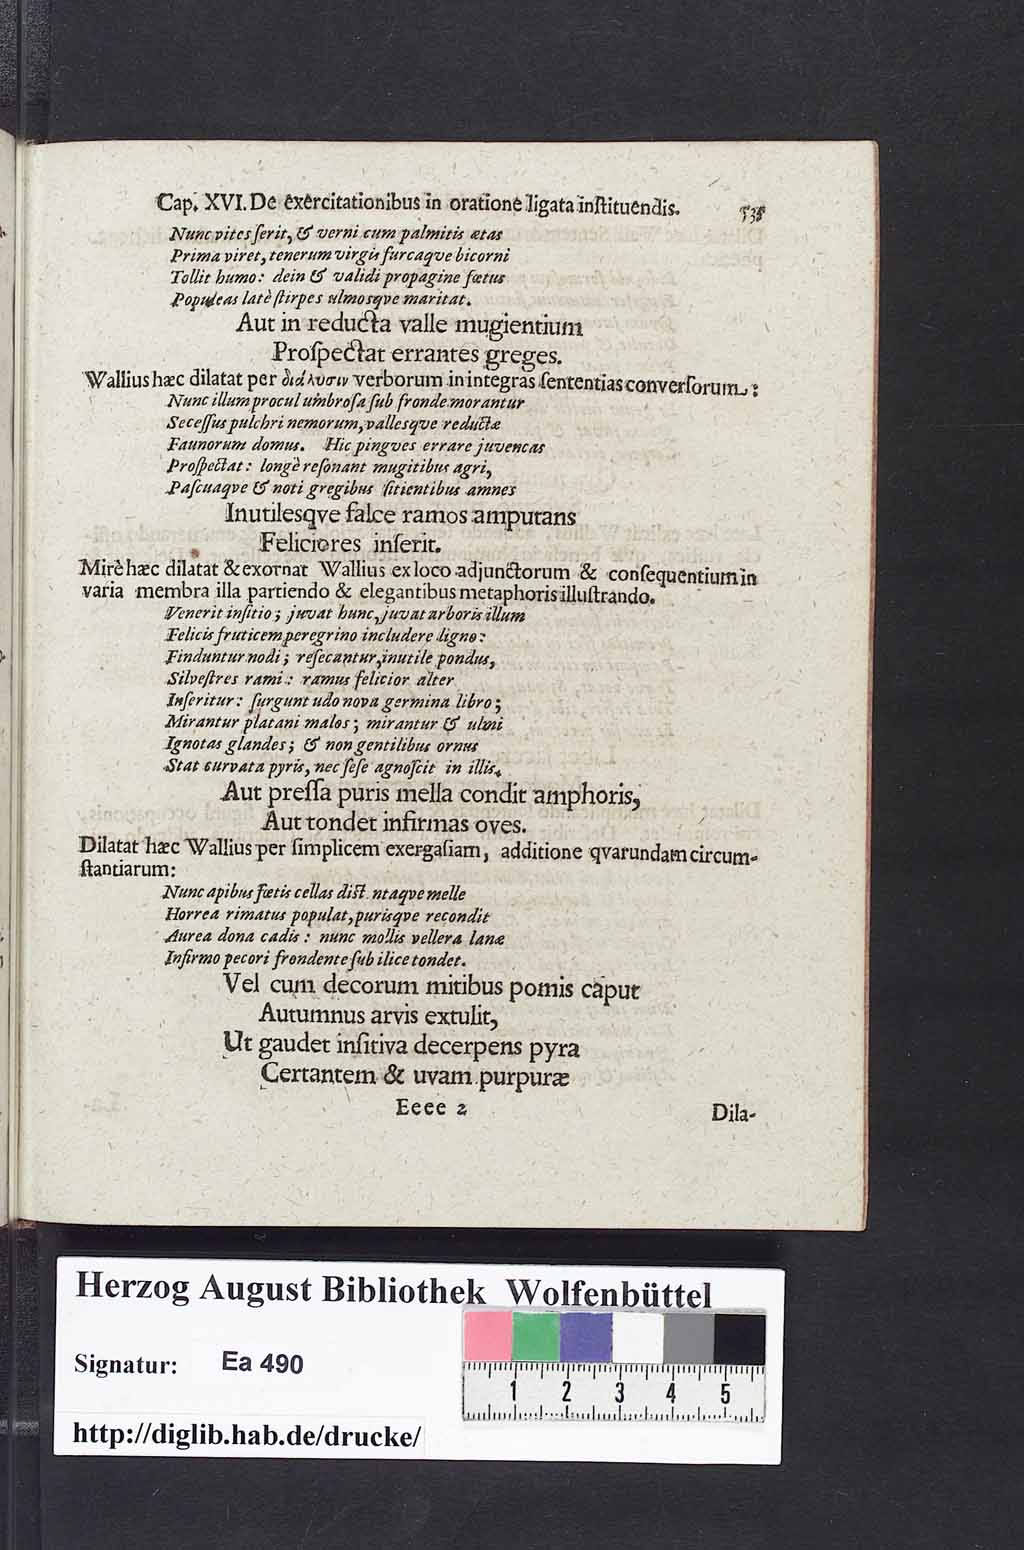 Cap. XVI. De exercitationibus in oratione ligata inſtituendis. 535
Nunc vites ſerit, & verni cum palmitis ætas
Prima viret, tenerum virgis furcaqve bicorni
Tollit humo: dein & validi propagine fœtus
Populeas latè ſtirpes ulmosqve maritat.
Aut in reducta valle mugientium
Proſpectat errantes greges.
Wallius hæc dilatat per διάλυσιν verborum in integras ſententias converſorum:
Nunc illum procul umbroſa ſub fronde morantur
Seceſſus pulchri nemorum, vallesqve reductæ
Faunorum domus. Hic pingves errare juvencas
Proſpectat: longè reſonant mugitibus agri,
Paſcuaqve & noti gregibus ſitientibus amnes
Inutilesqve falce ramos amputans
Feliciores inſerit.
Mirè hæc dilatat & exornat Wallius ex loco adjunctorum & conſequentium in
varia membra illa partiendo & elegantibus metaphoris illuſtrando.
Venerit inſitio; juvat hunc, juvat arboris illum
Felicis fruticem peregrino includere ligno:
Finduntur nodi; reſecantur, inutile pondus,
Silveſtres rami: ramus felicior alter
Inſeritur: ſurgunt udo nova germina libro;
Mirantur platani malos; mirantur & ulmi
Ignotas glandes; & non gentilibus ornus
Stat curvata pyris, nec ſeſe agnoſcit in illis.
Aut preſſa puris mella condit amphoris,
Aut tondet infirmas oves.
Dilatat hæc Wallius per ſimplicem exergaſiam, additione qvarundam circum-
ſtantiarum:
Nunc apibus fœtis cellas diſt ntaqve melle
Horrea rimatus populat, purisqve recondit
Aurea dona cadis: nunc mollis vellera lanæ
Infirmo pecori frondente ſub ilice tondet.
Vel cum decorum mitibus pomis caput
Autumnus arvis extulit,
Ut gaudet inſitiva decerpens pyra
Certantem & uvam purpuræ
Eeee 2 Dila-
Herzog August Bibliothek Wolfenbüttel
Signatur: Ea 490
1 2 3 4 5
http://diglib.hab.de/drucke/